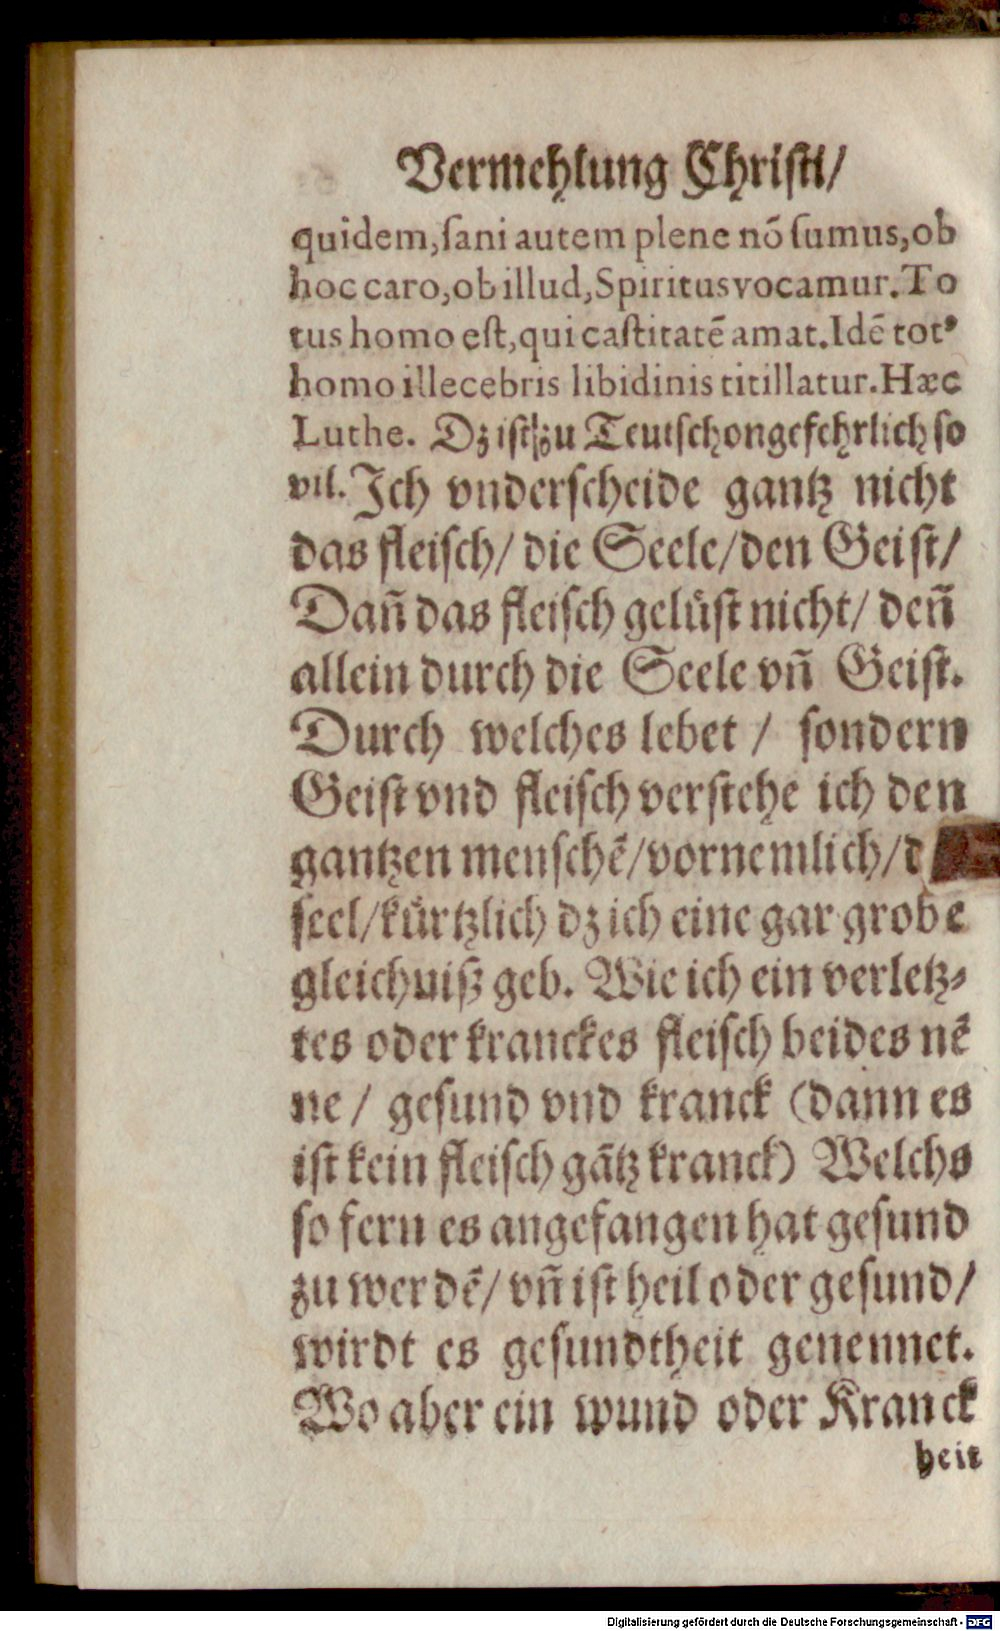 Vermehlung Christi/
quidem, sani autem plene nõ sumus, ob
hoc caro, ob illud, Spiritus vocamur. To
tus homo est, qui castitatẽ amat. Idẽ totꝰ
homo illecebris libidinis titillatur. Hæc
Luthe. Dz ist zu Teutsch ongefehrlich so
vil. Jch vnderscheide gantz nicht
das fleisch/ die Seele/ den Geist/
Dañ das fleisch gelüst nicht/ deñ
allein durch die Seele vñ Geist.
Durch welches lebet / sondern
Geist vnd fleisch verstehe ich den
gantzen menschẽ/ vornemlich/ d
seel/ kürtzlich dz ich eine gar grobe
gleichniß geb. Wie ich ein verletz-
tes oder kranckes fleisch beides nẽ
ne / gesund vnd kranck (dann es
ist kein fleisch gãtz kranck) Welchs
so fern es angefangen hat gesund
zu werdẽ/ vñ ist heil oder gesund/
wirdt es gesundtheit genennet.
Wo aber ein wund oder Kranck
heit
Digitalisierung gefördert durch die Deutsche Forschungsgemeinschaft - DFG